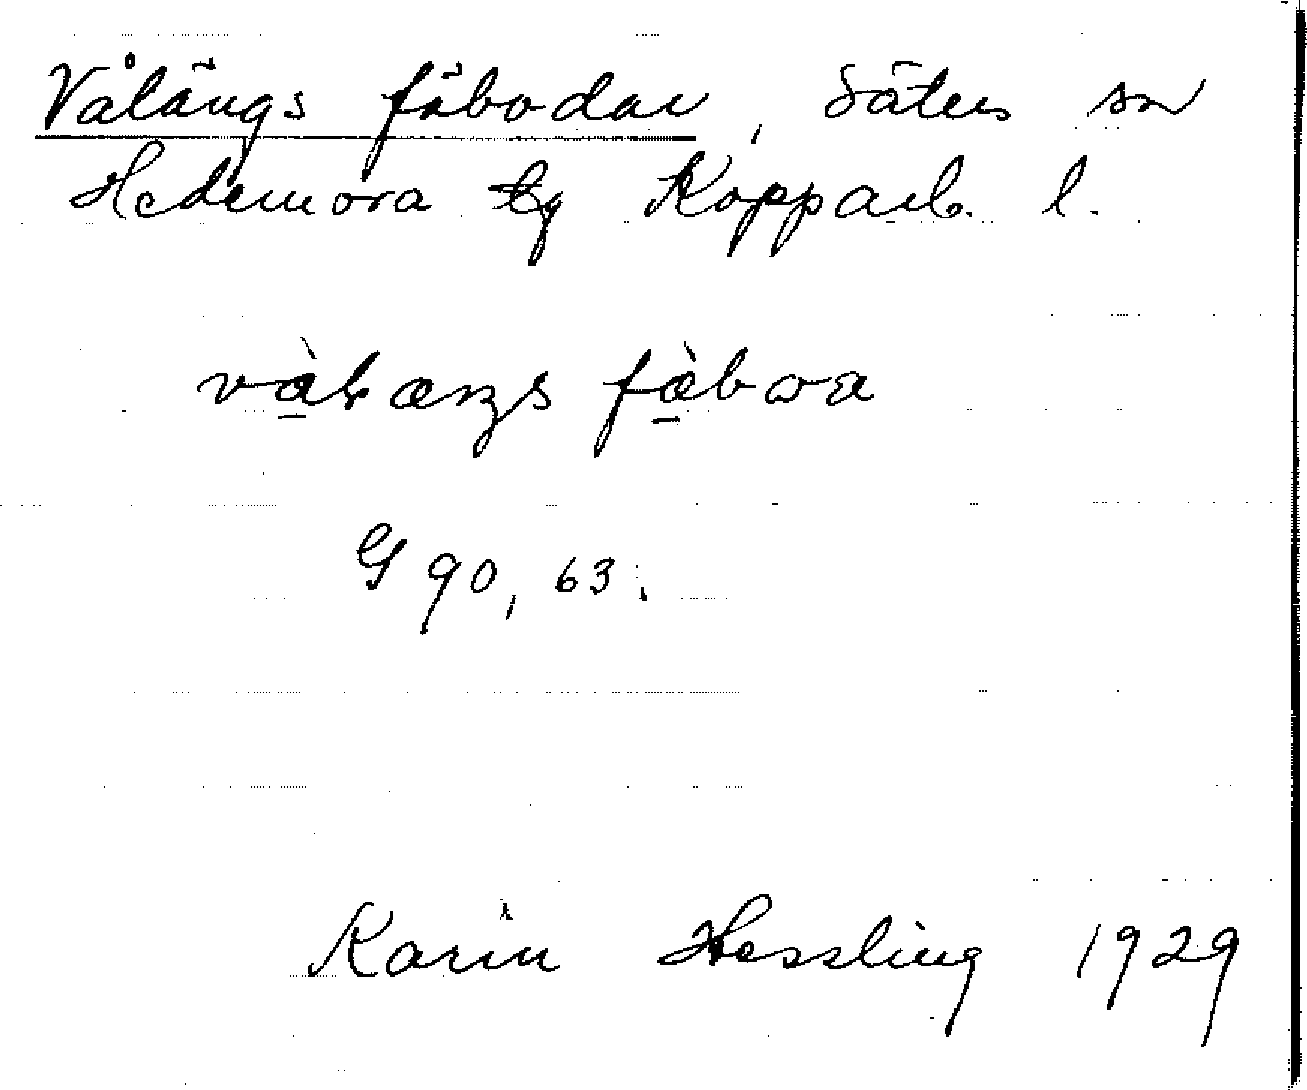 Vålängs fäbodar, Säters sn
Hedemora tg Kopparb. l.
fàbωa
G 90, 63.
Karin Hessling 1929